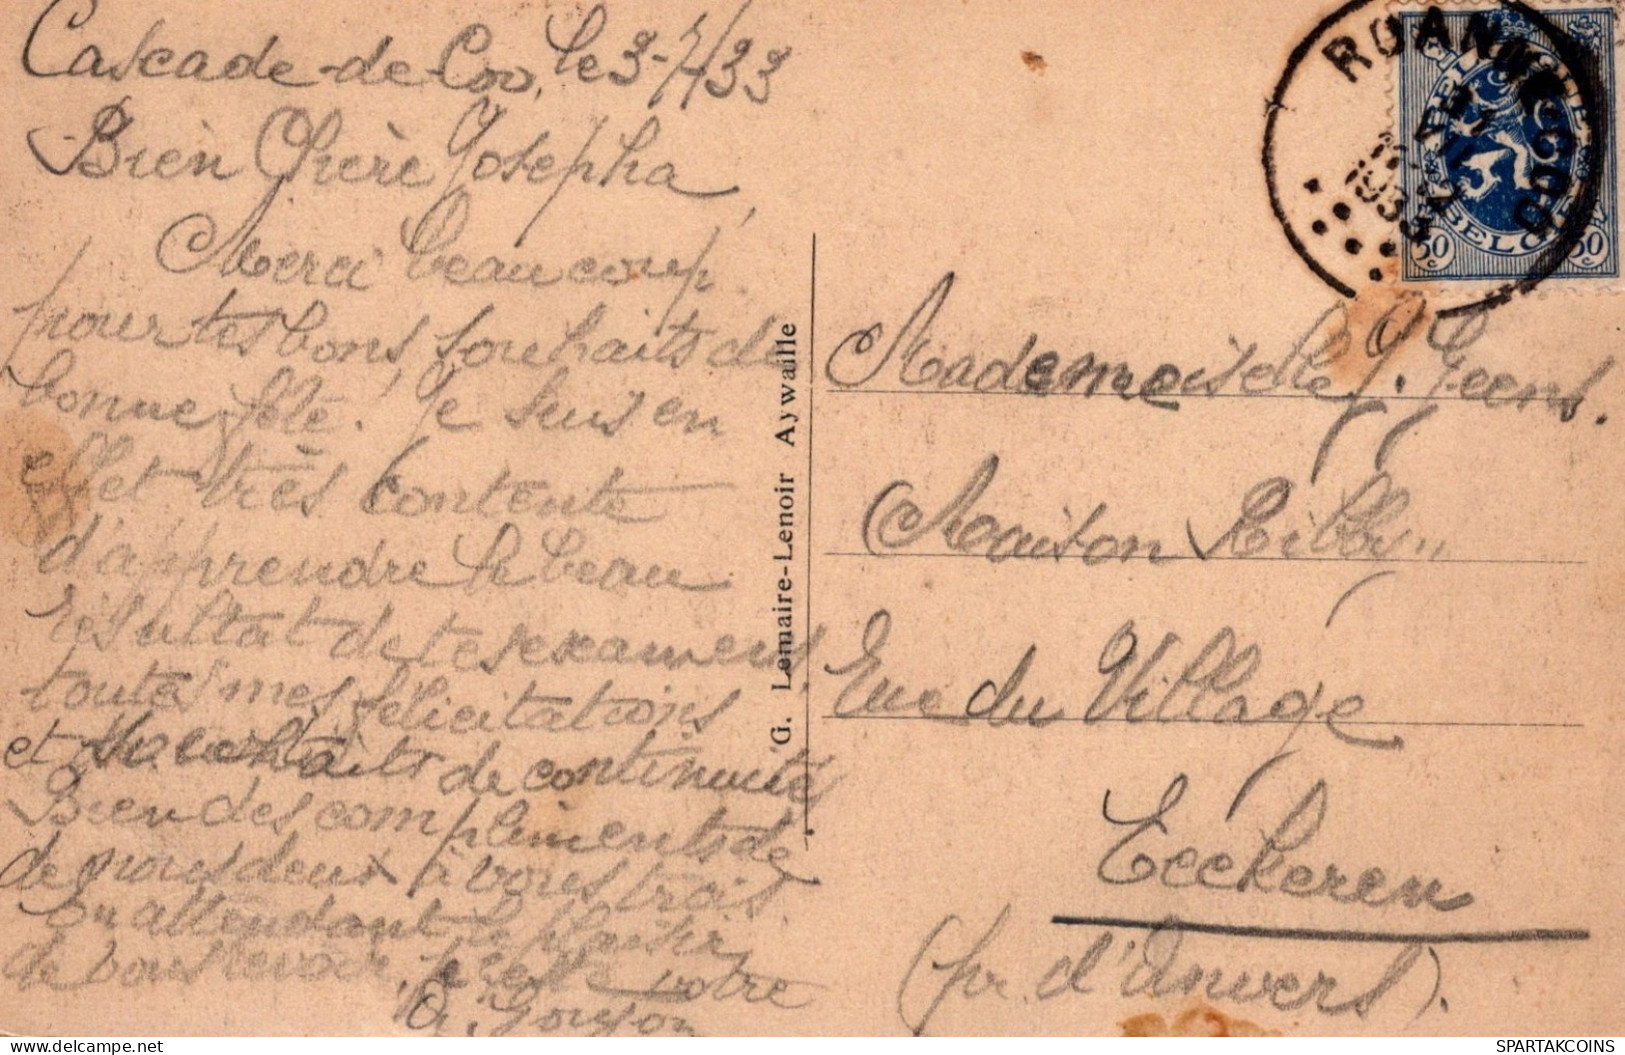 Cascade-de-Coo, le 3-7/33
Bien Chère Josepha,
Merci beaucoup
pour tes bons souhaits de
bonne fête. Je suis en
effet très contente
d'apprendre le beau
résultat de tes examens,
toutes mes félicitations
et souhaits de continuité
Bien des compliments de
de nous deux à vous trois
En attendant le plaisir
de vous revoir, je reste votre
ROANNE-COO
1933
BELGIE
BELGIQUE
50 c
50 c
Mademoiselle J. Geens.
Maison
Rue du Village
Eeckeren
(pr d'Anvers).
G. Lemaire-Lenoir Aywaille
delcampe.net
SPARTAKCOINS